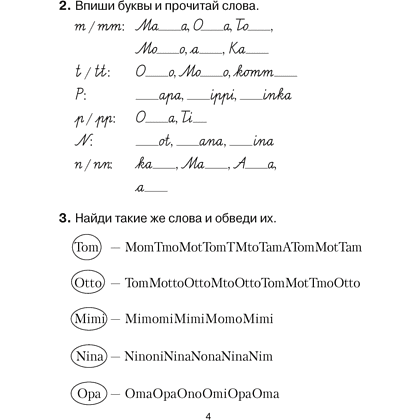 2. Впиши буквы и прочитай слова.
m / mm: Ma___a, O___a, To___,
Mo___o, a___, Ka___
t / tt: O___o, Mo___o, komm___
P: ___apa, ___ippi, ___inka
p / pp: O___a, Ti___
N: ___ot, ___ana, ___ina
n / nn: ka___, Ma___, A___a,
a___
3. Найди такие же слова и обведи их.
Tom — MomTmoMotTomTMtoTamATomMotTam
Otto — TomMottoOttoMtoOttoTomMotTmoOtto
Mimi — MimomiMimiMomoMimi
Nina — NinoniNinaNonaNinaNim
Opa — OmaOpaOnoOmiOpaOma
4